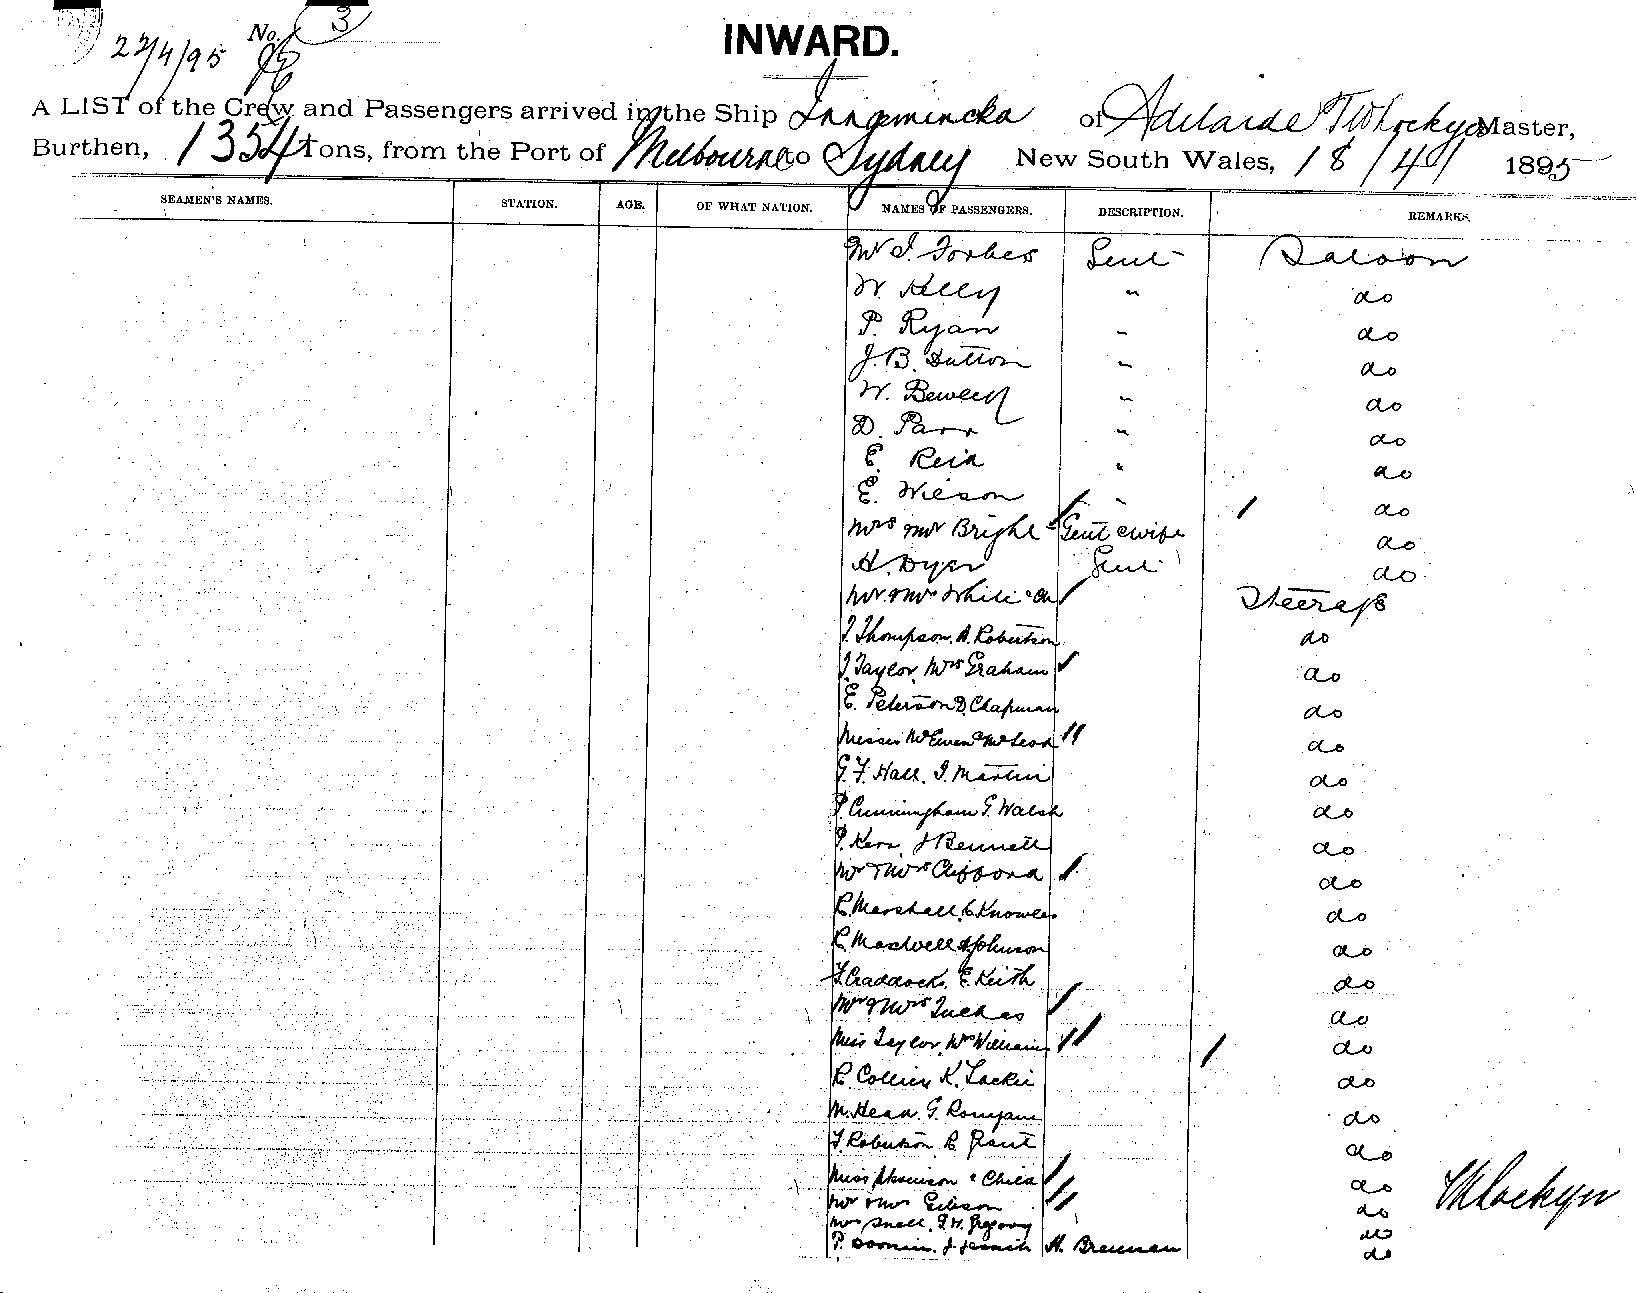 22/4/95 No. 3
INWARD.
A LIST of the Crew and Passengers arrived in the Ship Innamincka of Adelaide Master,
Burthen, 1354 Tons, from the Port of Melbourne to Sydney New South Wales, 18/4/ 1895
SEAMEN'S NAMES. STATION. AGE. OF WHAT NATION. NAMES OF PASSENGERS. DESCRIPTION. REMARKS.
Mr I. Forbes Gent Saloon
W. Kelly " do
P. Ryan " do
J.B. Dutton " do
W. " do
D. Parr " do
E. Reid " do
E. Wilson " do
Mrs Mr Bright Gent & wife do
H. Dyer Gent do
Mr & Mrs White & Steerage
J. Thompson. A. Robertson do
J. Taylor. Mrs Graham do
E. Peterson D. Chapman do
Misses McEwen & McLeod do
G.F. Hall. J. Martin do
P. Cunningham G. Walsh do
P. Kerr. J Bennett do
Mr & Mrs Clifford do
R. Marshall. C Knowles do
R. Maxwell A Johnson do
F. Craddock. E. Keith do
Mr & Mrs do
Miss Taylor. Mrs Williams do
R Collier K. Lackie do
M. Head. G. do
F. Robertson. R. Grant do
Miss & Child do
Mr & Mrs Gibson do
Mrs Snell. J.H. Gregory do
P. J. H. Brennan do